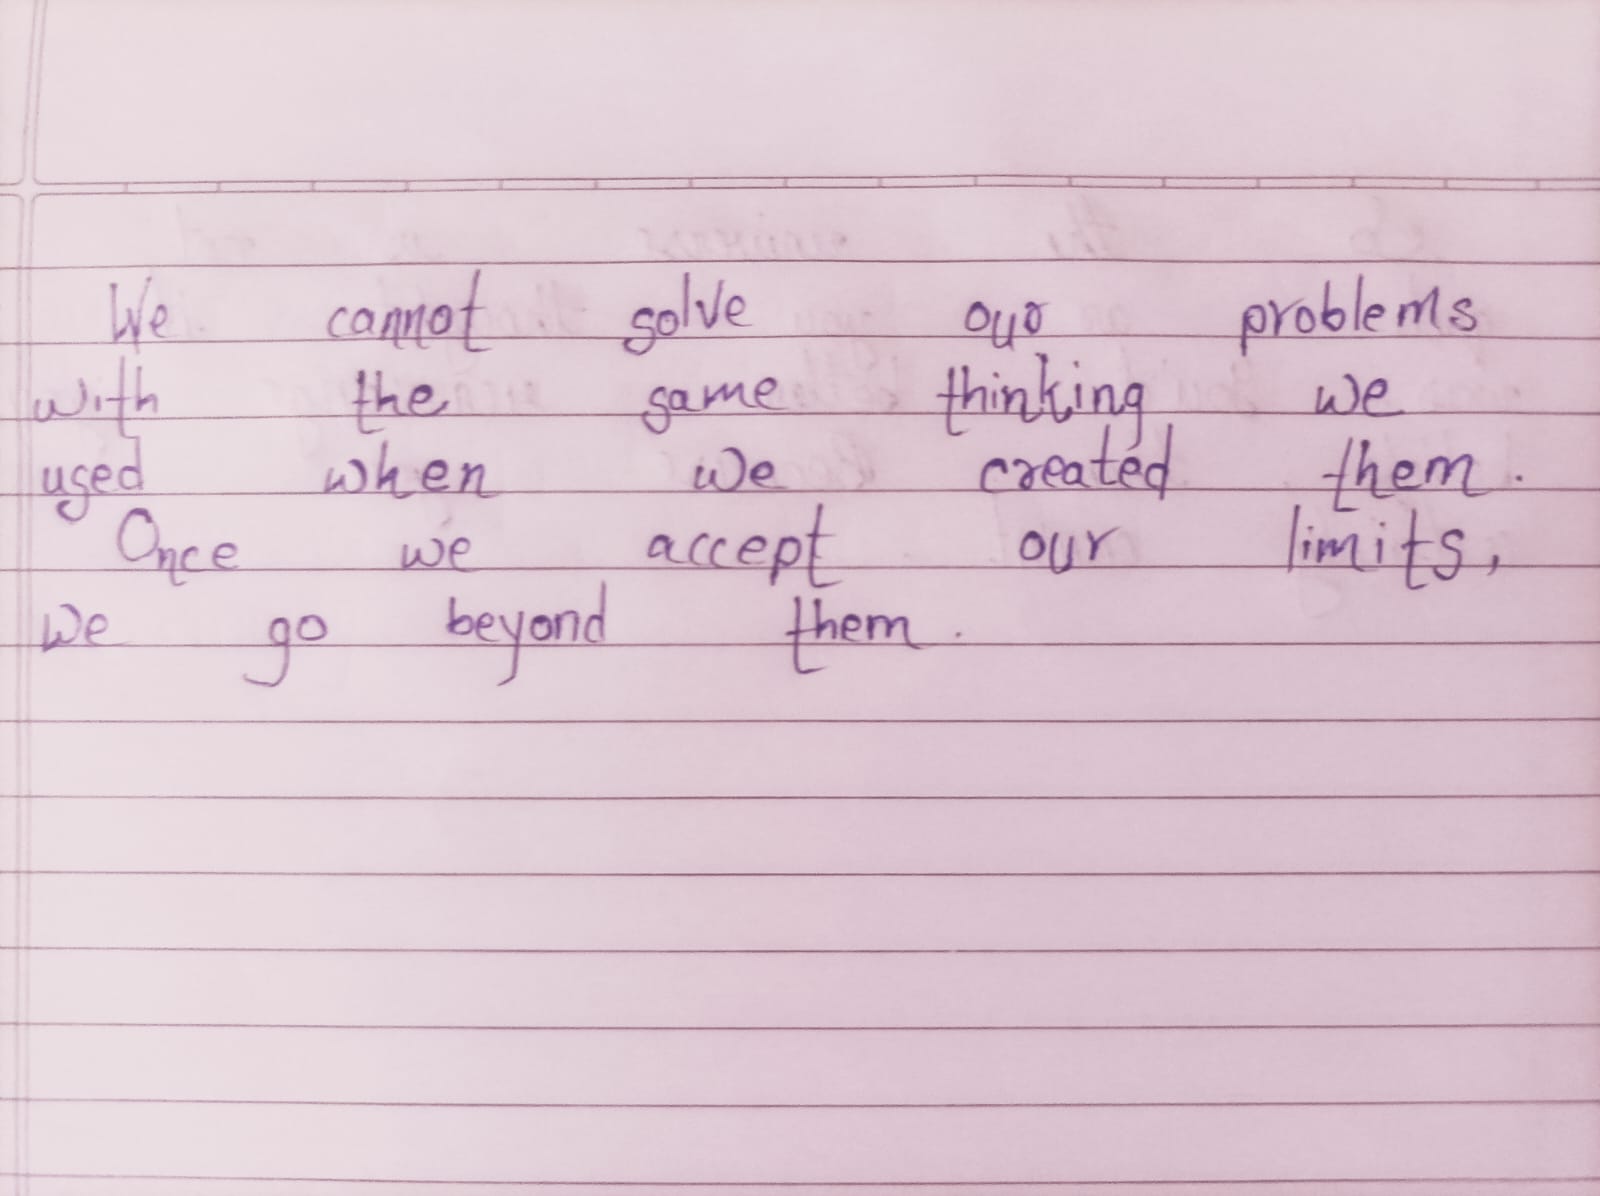 We cannot solve our problems
with the same thinking we
used when we created them.
Once we accept our limits,
we go beyond them.